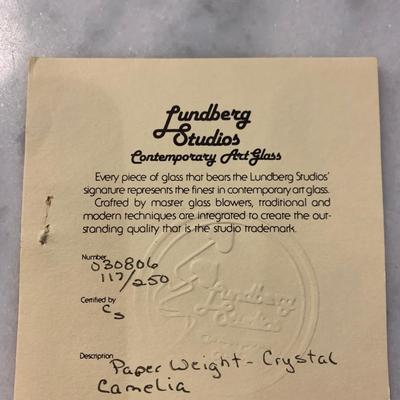 Lundberg
Studios
Contemporary Art Glass
Every piece of glass that bears the Lundberg Studios'
signature represents the finest in contemporary art glass.
Crafted by master glass blowers, traditional and
modern techniques are integrated to create the out-
standing quality that is the studio trademark.
Number
030806
117/250
Certified by
CS
Description
Paper Weight - Crystal
Camelia
Lundberg
Studios